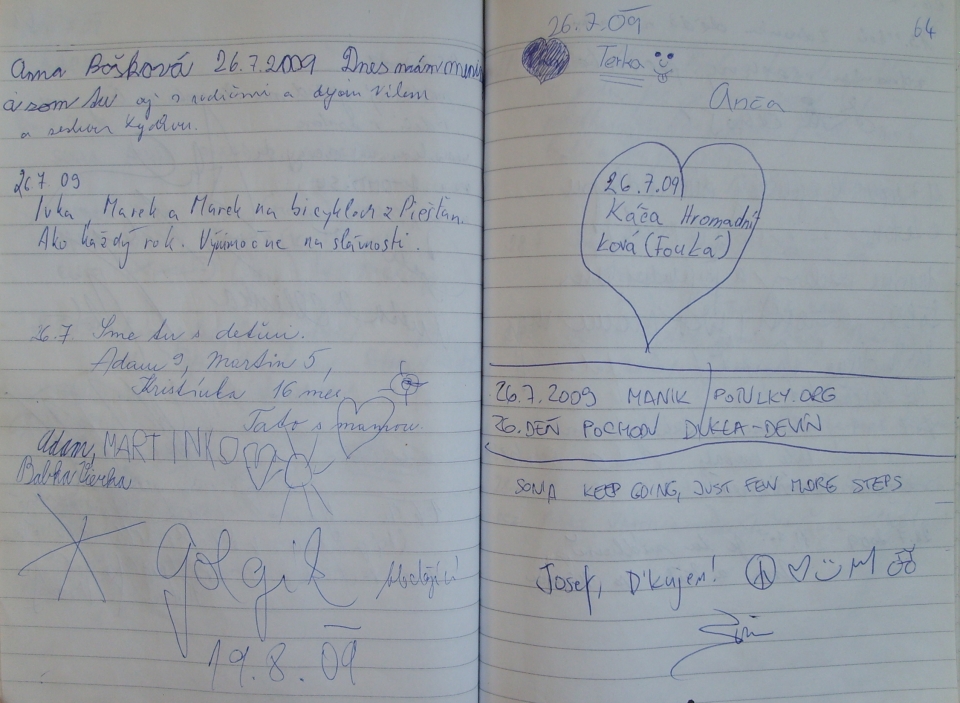 Anna Bošková 26.7.2009 Dnes mám meniny
a som tu aj s rodičmi a dyom Vilem
a
26 7 09
Ivka, Marek a Marek na bicykloch z Piešťan.
Ako každý rok. Výnimočne na slávnosti.
26.7. Sme tu s deťmi.
Adam 9, Martin 5,
Kristínka 16 mes.
Tato s mamou.
Adam, MARTINKO
Babka Vierka
Golgit
19.8.09
26.7.09
64
Terka
Anča
26.7.09
Káča Hromadní
ková (Fouká)
26.7.2009 MANIK / POTULKY.ORG
26. DEŇ POCHOD DUKLA-DEVÍN
SONIA KEEP GOING, JUST FEW MORE STEPS
Josef, D'kujem!